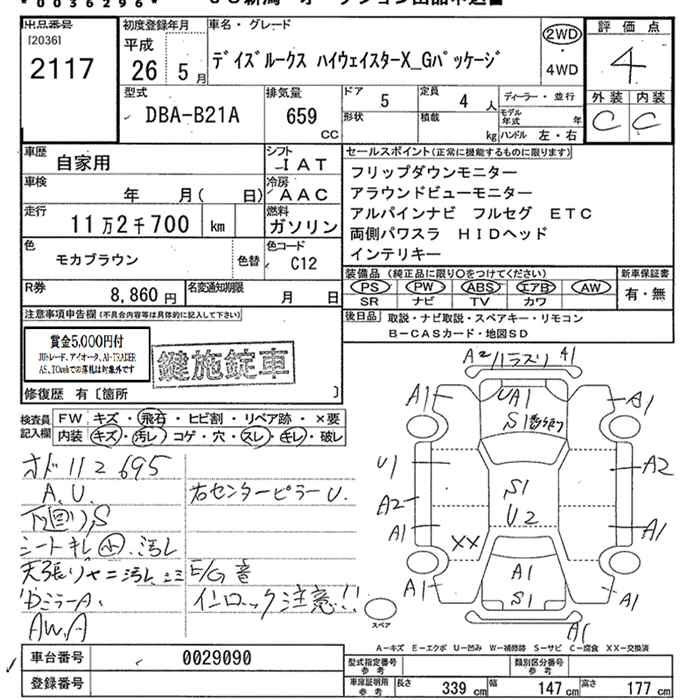 *0036296*
出品番号
[2036]
2117
初度登録年月
平成
26 5月
車名・グレード
デイズルークス ハイウェイスターX_Gパッケージ
2WD
・
4WD
評価点
4
外装 内装
C C
型式
DBA-B21A
排気量
659
CC
ドア 5
定員 4 人
形状
積載 kg
ディーラー・並行
モデル年式 年
ハンドル 左・右
車歴
自家用
シフト
IAT
車検
年 月( 日)
冷房
AAC
走行
11万2千700 km
燃料
ガソリン
色
モカブラウン
色替
色コード
C12
R券
8,860円
名変通知期限
月 日
セールスポイント(正常に機能するものに限ります)
フリップダウンモニター
アラウンドビューモニター
アルパインナビ フルセグ ETC
両側パワスラ HIDヘッド
インテリキー
装備品(純正品に限り○をつけてください)
PS PW ABS エアB AW
SR ナビ TV カワ
新車保証書
有・無
後日品 取説・ナビ取説・スペアキー・リモコン
B-CASカード・地図SD
注意事項申告欄(不具合内容等は具体的に記入して下さい)
賞金5,000円付
JUトレード、アイオーク、AI-TRADER
での落札は対象外です
鍵施錠車
修復歴 有〔箇所 〕
検査員記入欄
FW キズ・飛石・ヒビ割・リペア跡・×要
内装 キズ・汚レ・コゲ・穴・スレ・キレ・破レ
オド112695
A.U.
下回りS
シートキレ小.汚レ
天張りヤニ汚レ
DミラーA.
AW.A
右センターピラーU.
E/G音
インロック注意!!
A2 バラズリ A1
A1 UA1 A1
S1
U1 S1 A2
A2 U2
A1 A1
XX
A1 A1 A1
S1
A1
スペア
A-キズ E-エクボ U-凹み W-補修跡 S-サビ C-腐食 XX-交換済
車台番号 0029090
登録番号
型式指定番号 参考
類別区分番号 参考
車庫証明用 参考 長さ 339cm 幅 147cm 高さ 177cm